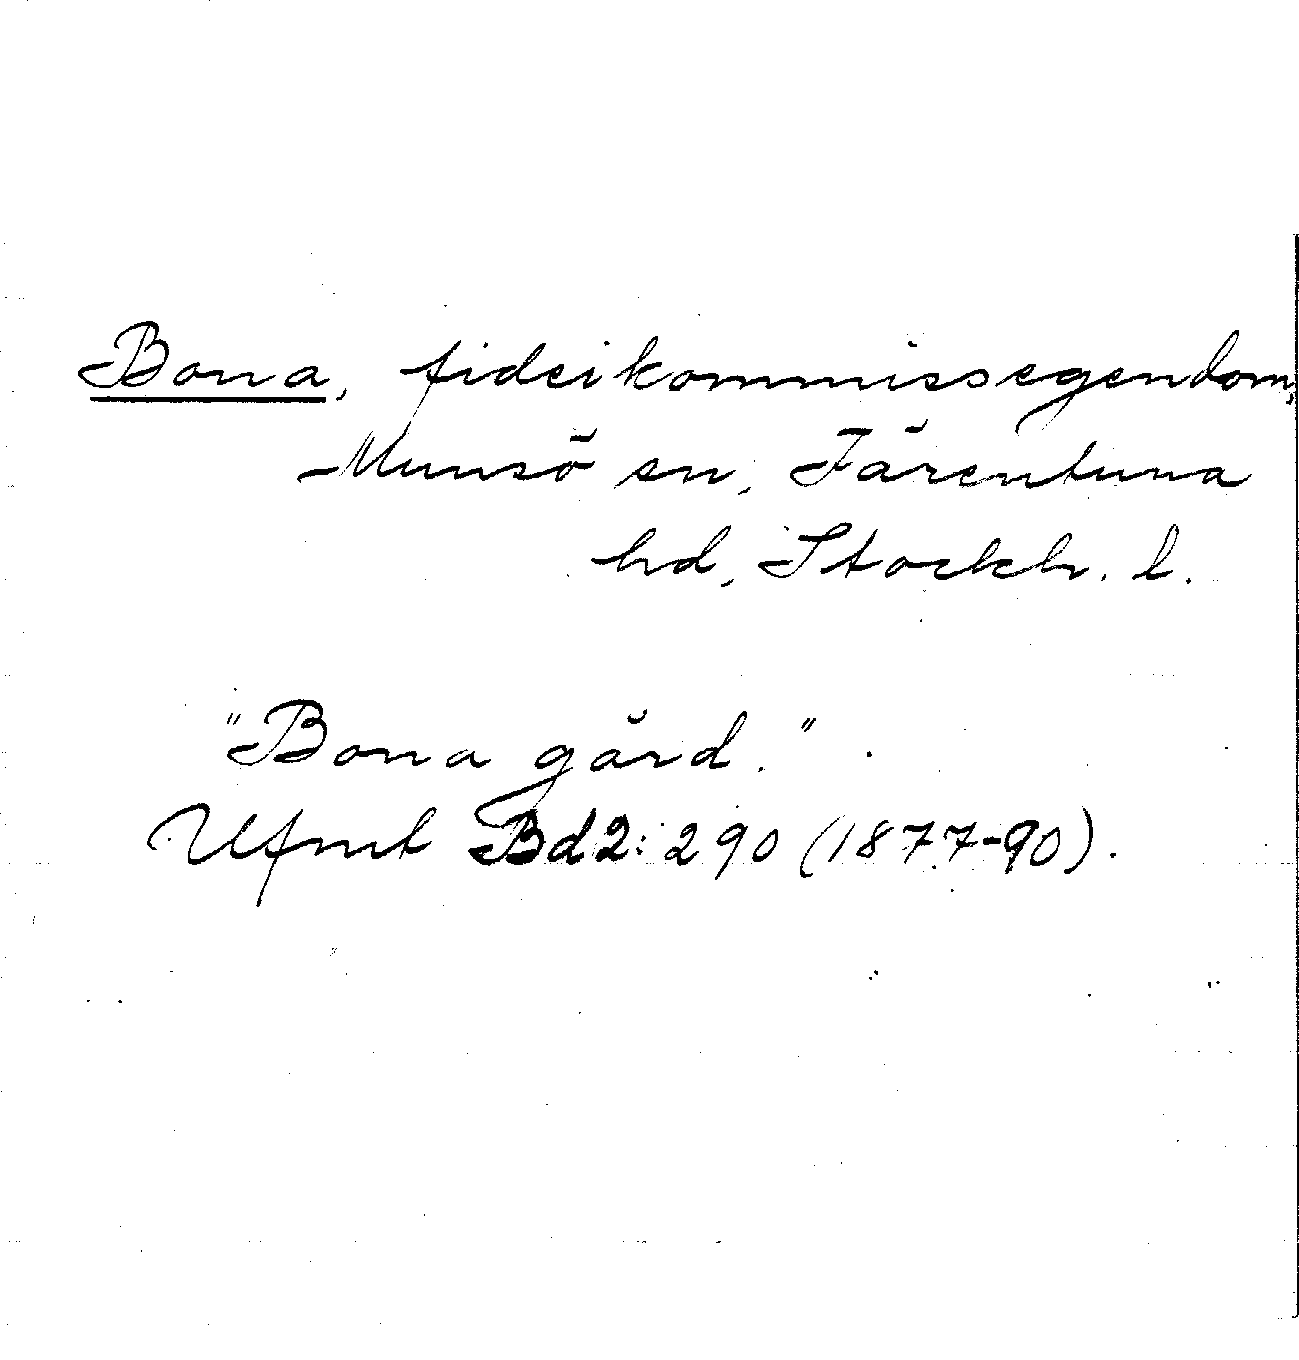 Bona, fideikommissegendom,
Munsö sn, Färentuna
hd, Stockh. l.
"Bona gård."
Ufmt Bd2: 290 (1877-90).